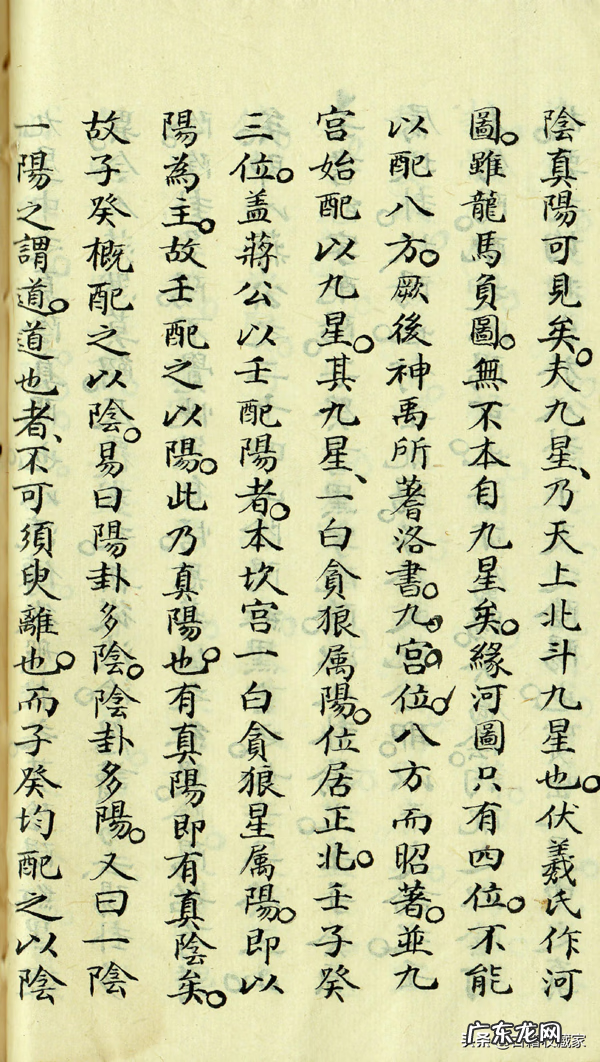 陰真陽可見矣。夫九星、乃天上北斗九星也。伏羲氏作河
圖。雖龍馬負圖。無不本自九星矣。緣河圖只有四位。不能
以配八方。厥後神禹所著洛書。九宮位八方而昭著。並九
宮始配以九星。其九星、一白貪狼属陽。位居正北。壬子癸
三位。盖蔣公以壬配陽者。本坎宮一白貪狼星属陽。即以
陽為主。故壬配之以陽。此乃真陽也。有真陽即有真陰矣。
故子癸概配之以陰。易曰陽卦多陰。陰卦多陽。又曰一陰
一陽之謂道。道也者、不可須臾離也。而子癸均配之以陰
头条
广东龙网